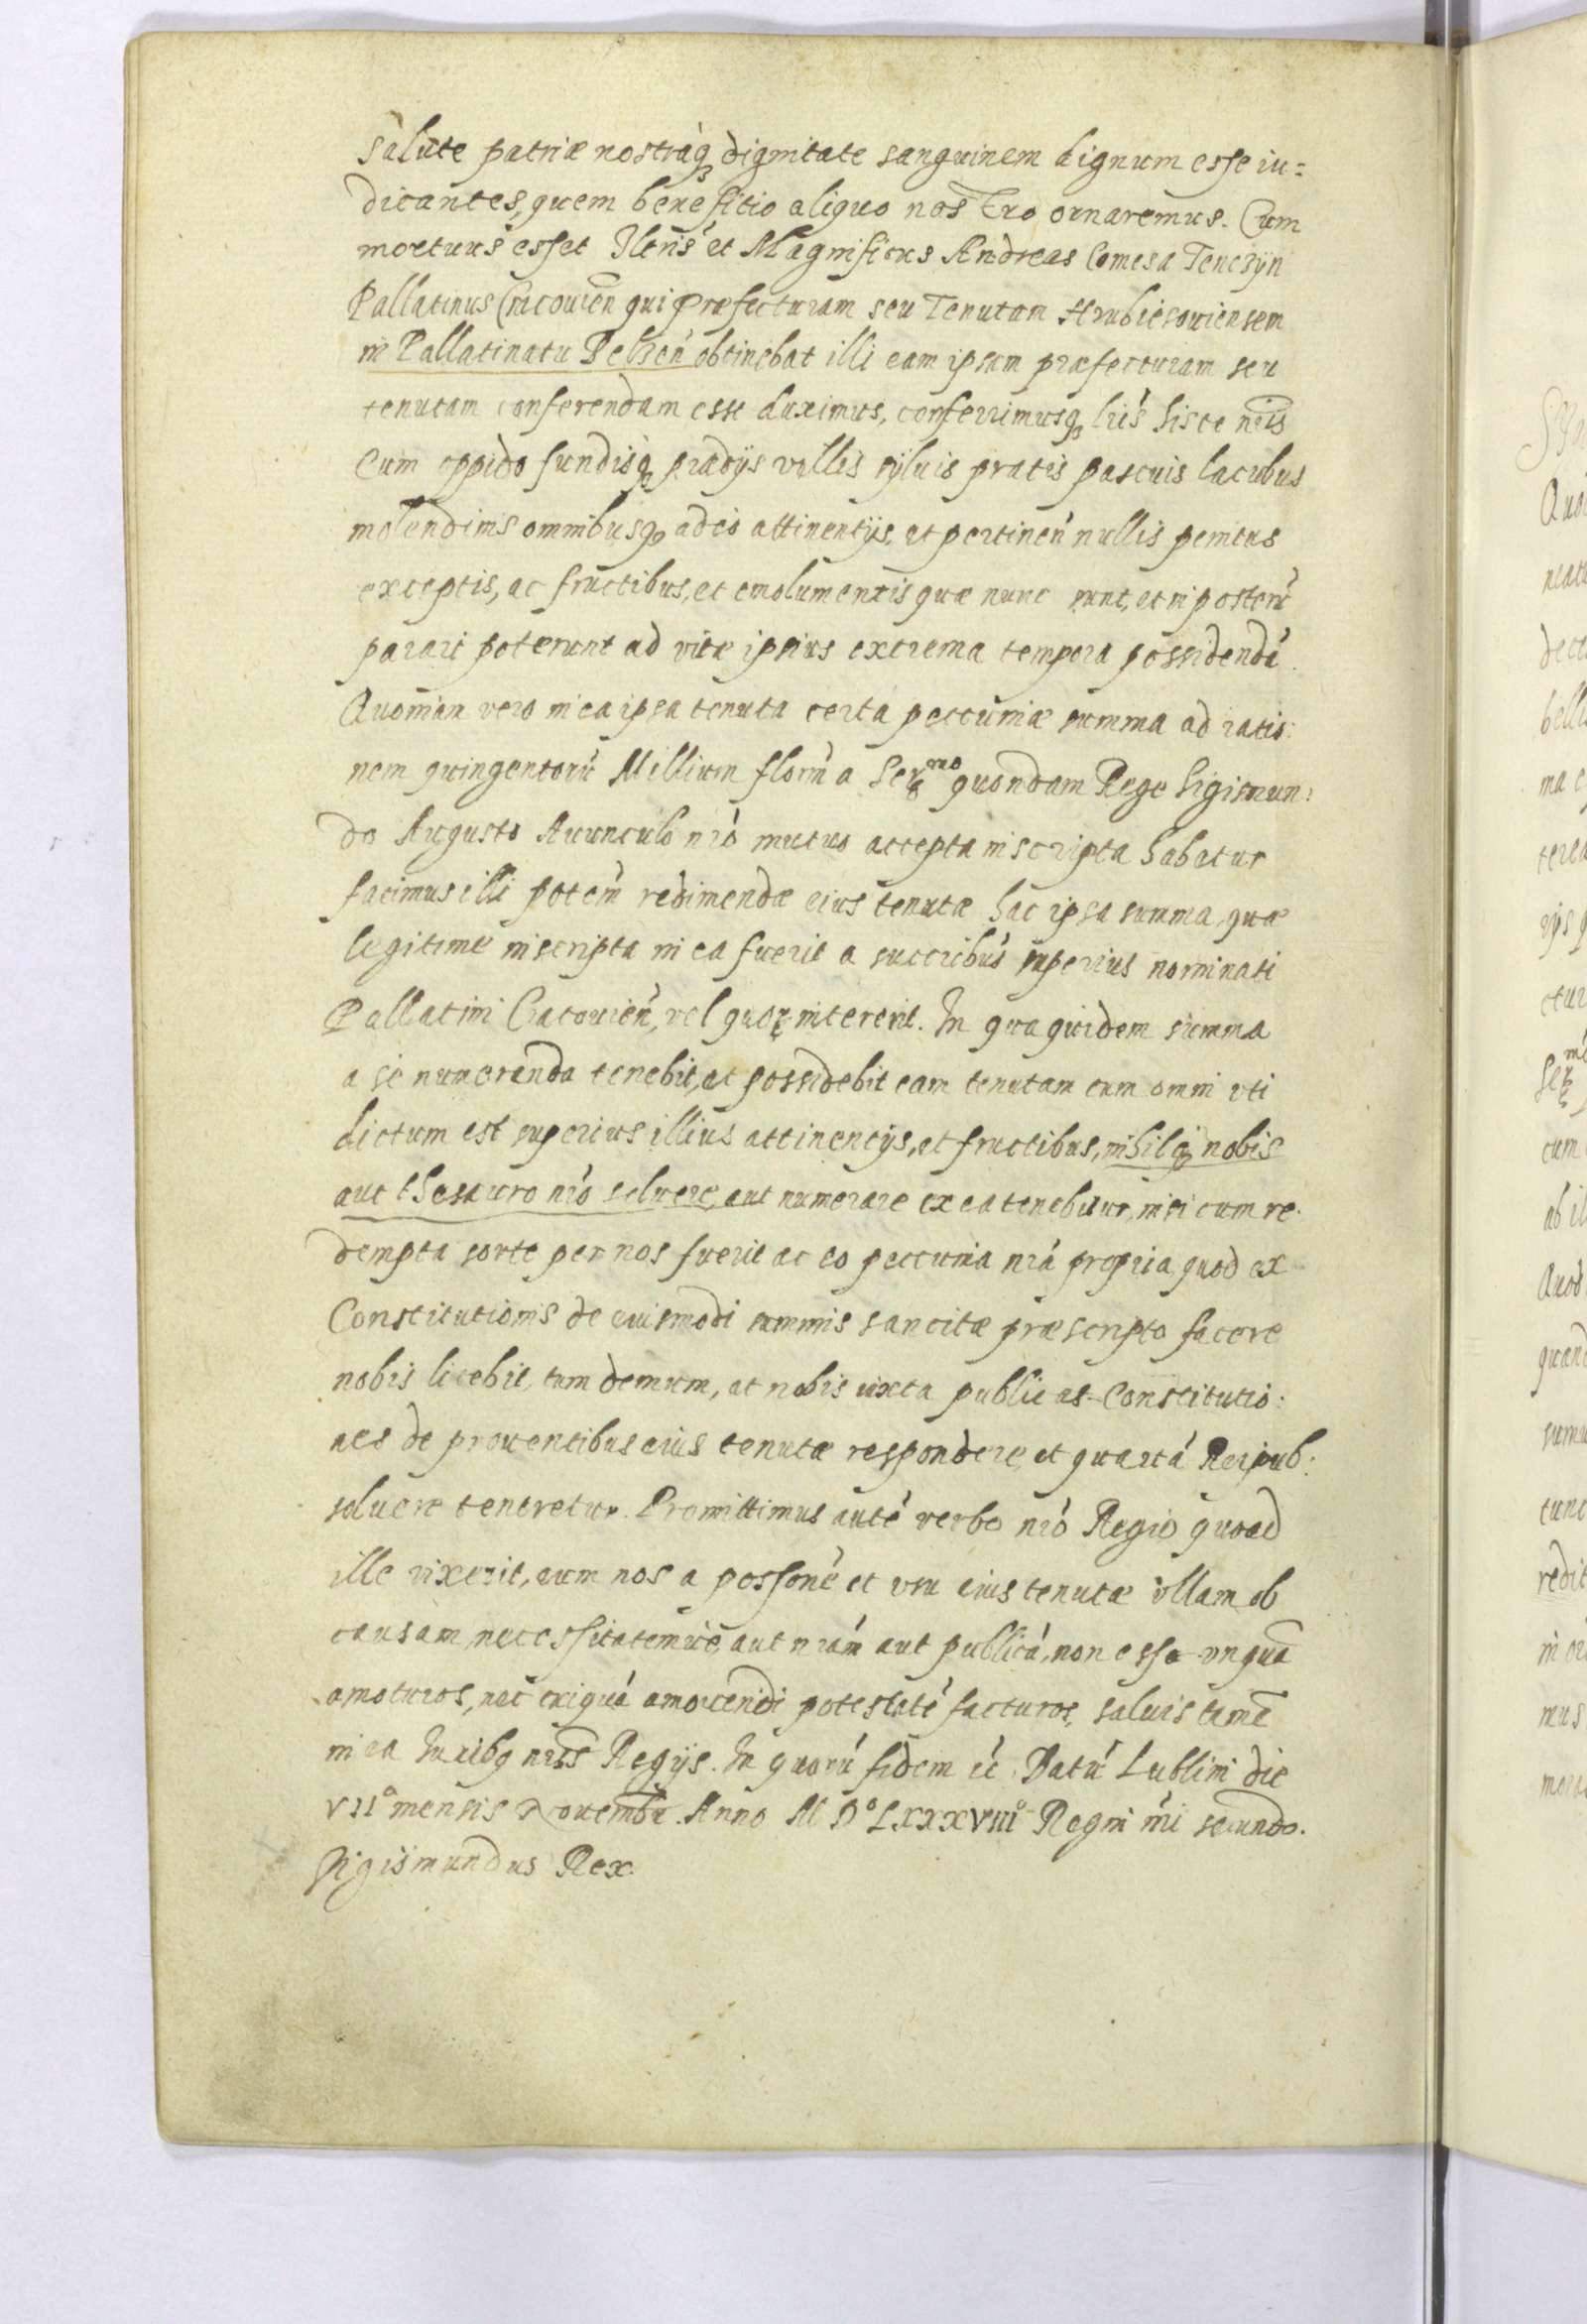 salute patriæ nostraq₃ dignitate sanguinem dignum esse iu=
dicantes, quem benefitio aliquo nostro ornaremus. Cum
mortuus esset Iltris et Magnificus Andreas Comes a Tenczyn
Pallatinus Cracouien qui præfecturam seu Tenutam Hrubiesouiensem
in Pallatinatu Belzen obtinebat illi eam ipsam præfecturam seu
tenutam conferendam esse duximus, conferrimusq₃ lris hisce nris
Cum oppido fundisq₃ prædijs villis syluis pratis pascuis lacubus
molendinis omnibusq₃ ad eō attinentijs, et pertinen nullis penitus
exceptis, ac fructibus, et emolumentis quæ nunc sunt, et in posterū
parari poterunt ad vitæ ipsius extrema tempora possidendā.
Quoniam vero in ea ipsa tenuta certa peccuniæ summa ad ratio:
nem quingentorū Millium florū a Serᵐᵒ quondam Rege Sigismun:
do Augusto Auunculo nrō mutuo accepta inscripta habatur
facimus illi potem redimendæ eius tenutæ hac ipsa summa, quæ
legitime inscripta in ea fuerit a succribus superius nominati
Pallatini Cracouien, vel quoꝝ intererit. In qua quidem summa
a se numeranda tenebit, ac possidebit eam tenutam cum omni vti
dictum est superius illius attinencijs, et fructibus, nihilq₃ nobis
aut thesauro nrō soluere, aut numerare ex ea tenebitur, nisi cum re
dempta sorte per nos fuerit ac eo peccunia nrā propria, quod ex
Constitutionis de euismodi summis sancitæ præscripto facere
nobis licebit, tum demum, at nobis iuxta publicas Constitutio:
nes de prouentibus eius tenutæ respondere, et quartā Reipub:
soluere teneretur. Promittimus autē verbo nrō Regio quoad
ille vixerit, eum nos a possonē et vsu eius tenutæ vllam ob
causam, necessitatemue, aut nrām aut publicā, non esse vnquā
amoturos, nec cuiquā amouendi potestatē facturos, saluis tamē
in ea Iuribq nris Regijs. In quorū fidem ec. Datū Lublini die
VIIº mensis Nouembr. Anno M Dº LXXXVIIIº Regni nri secundo.
Sigismundus Rex.